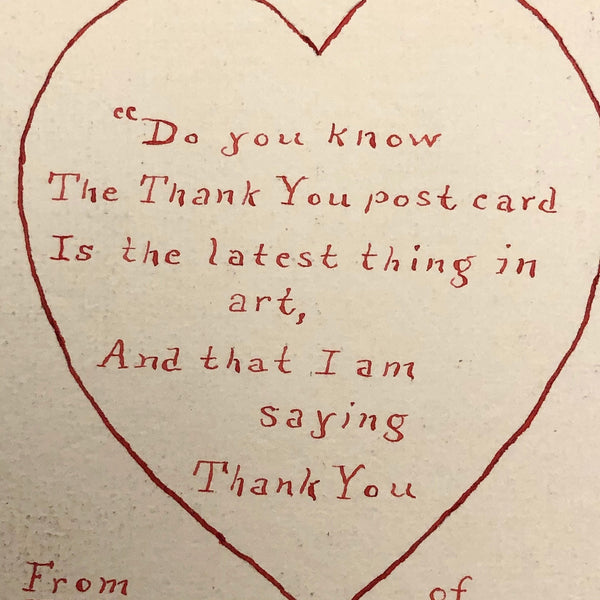 “Do you know
The Thank You post card
Is the latest thing in
art,
And that I am
saying
Thank You
From of